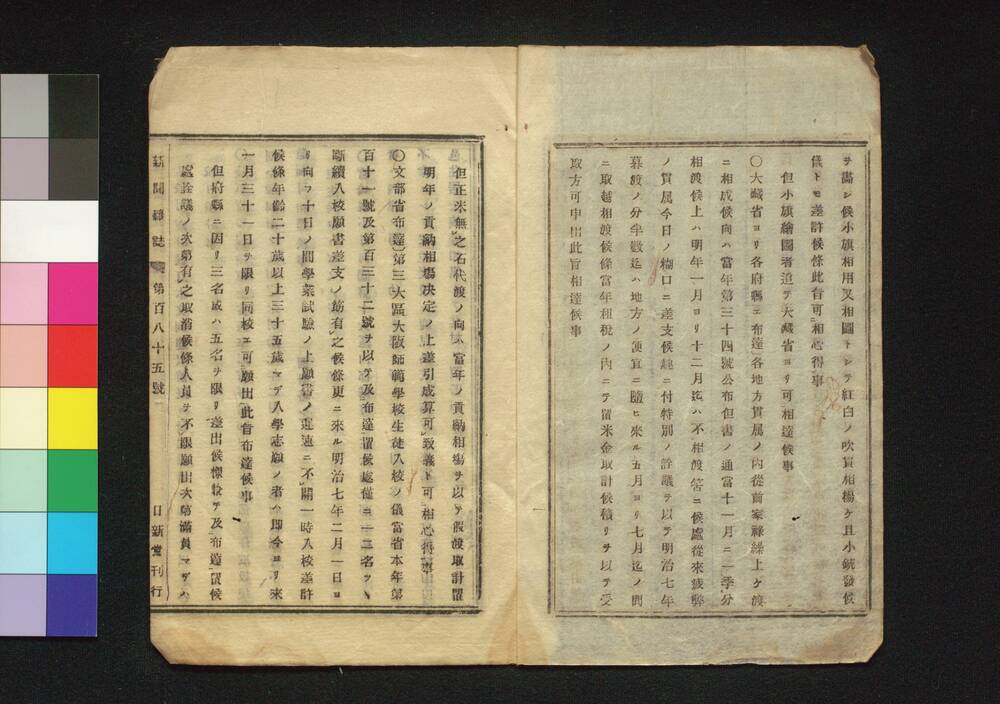 ヲ満シ候小旗相用又相圖トシテ紅白ノ吹貫相揚ケ且小銃發候
儀トモ差許候條此旨可相心得事
但小旗繪圖者追テ大藏省ヨリ可相達候事
〇大藏省ヨリ各府縣エ布達〕各地方貫属ノ内從前家祿繰上ケ渡
ニ相成候向ハ當年第三十四號公布但書ノ通當十一月ニ一季分
相渡候上ハ明年一月ヨリ十二月迄ハ不相渡筈ニ候處從來疲弊
ノ貫属今日ノ糊口ニ差支候趣ニ付特別ノ詮議ヲ以テ明治七年
暮渡ノ分半数迄ハ地方ノ便宜ニ隨ヒ來ル五月ヨリ七月迄ノ間
ニ取越相渡候條當年租税ノ内ニテ留米金取計候積リヲ以テ受
取方可申出此旨相達候事
但正米無之石代渡ノ向ハ當年ノ貢納相場ヲ以テ假渡取計置
明年ノ貢納相場决定ノ上差引成算可致義ト可相心得事
〇文部省布達〕第三大區大阪師範學校生徒入校ノ儀當省本年第
百十一號及第百三十二號ヲ以テ及布達置候處僅ニ一二名ヲ
斷續入校願書差支ノ筋有之候條更ニ來ル明治七年二月一日ヨ
リ向フ十日ノ間學業試驗ノ上願書ノ遲速ニ不關一時入校差許
候條年齡二十歳以上三十五歳マデ入學志願ノ者ハ即今ヨリ來
一月三十一日ヲ限リ同校エ可願出此旨布達候事
但府縣ニ因リ三名或ハ五名ヲ限リ差出候樣致テ及布達置候
處詮議ノ次第有之取消候條人員ヲ不限願出次第滿員マデハ
新聞雜誌 第百八十五號 日新堂刊行